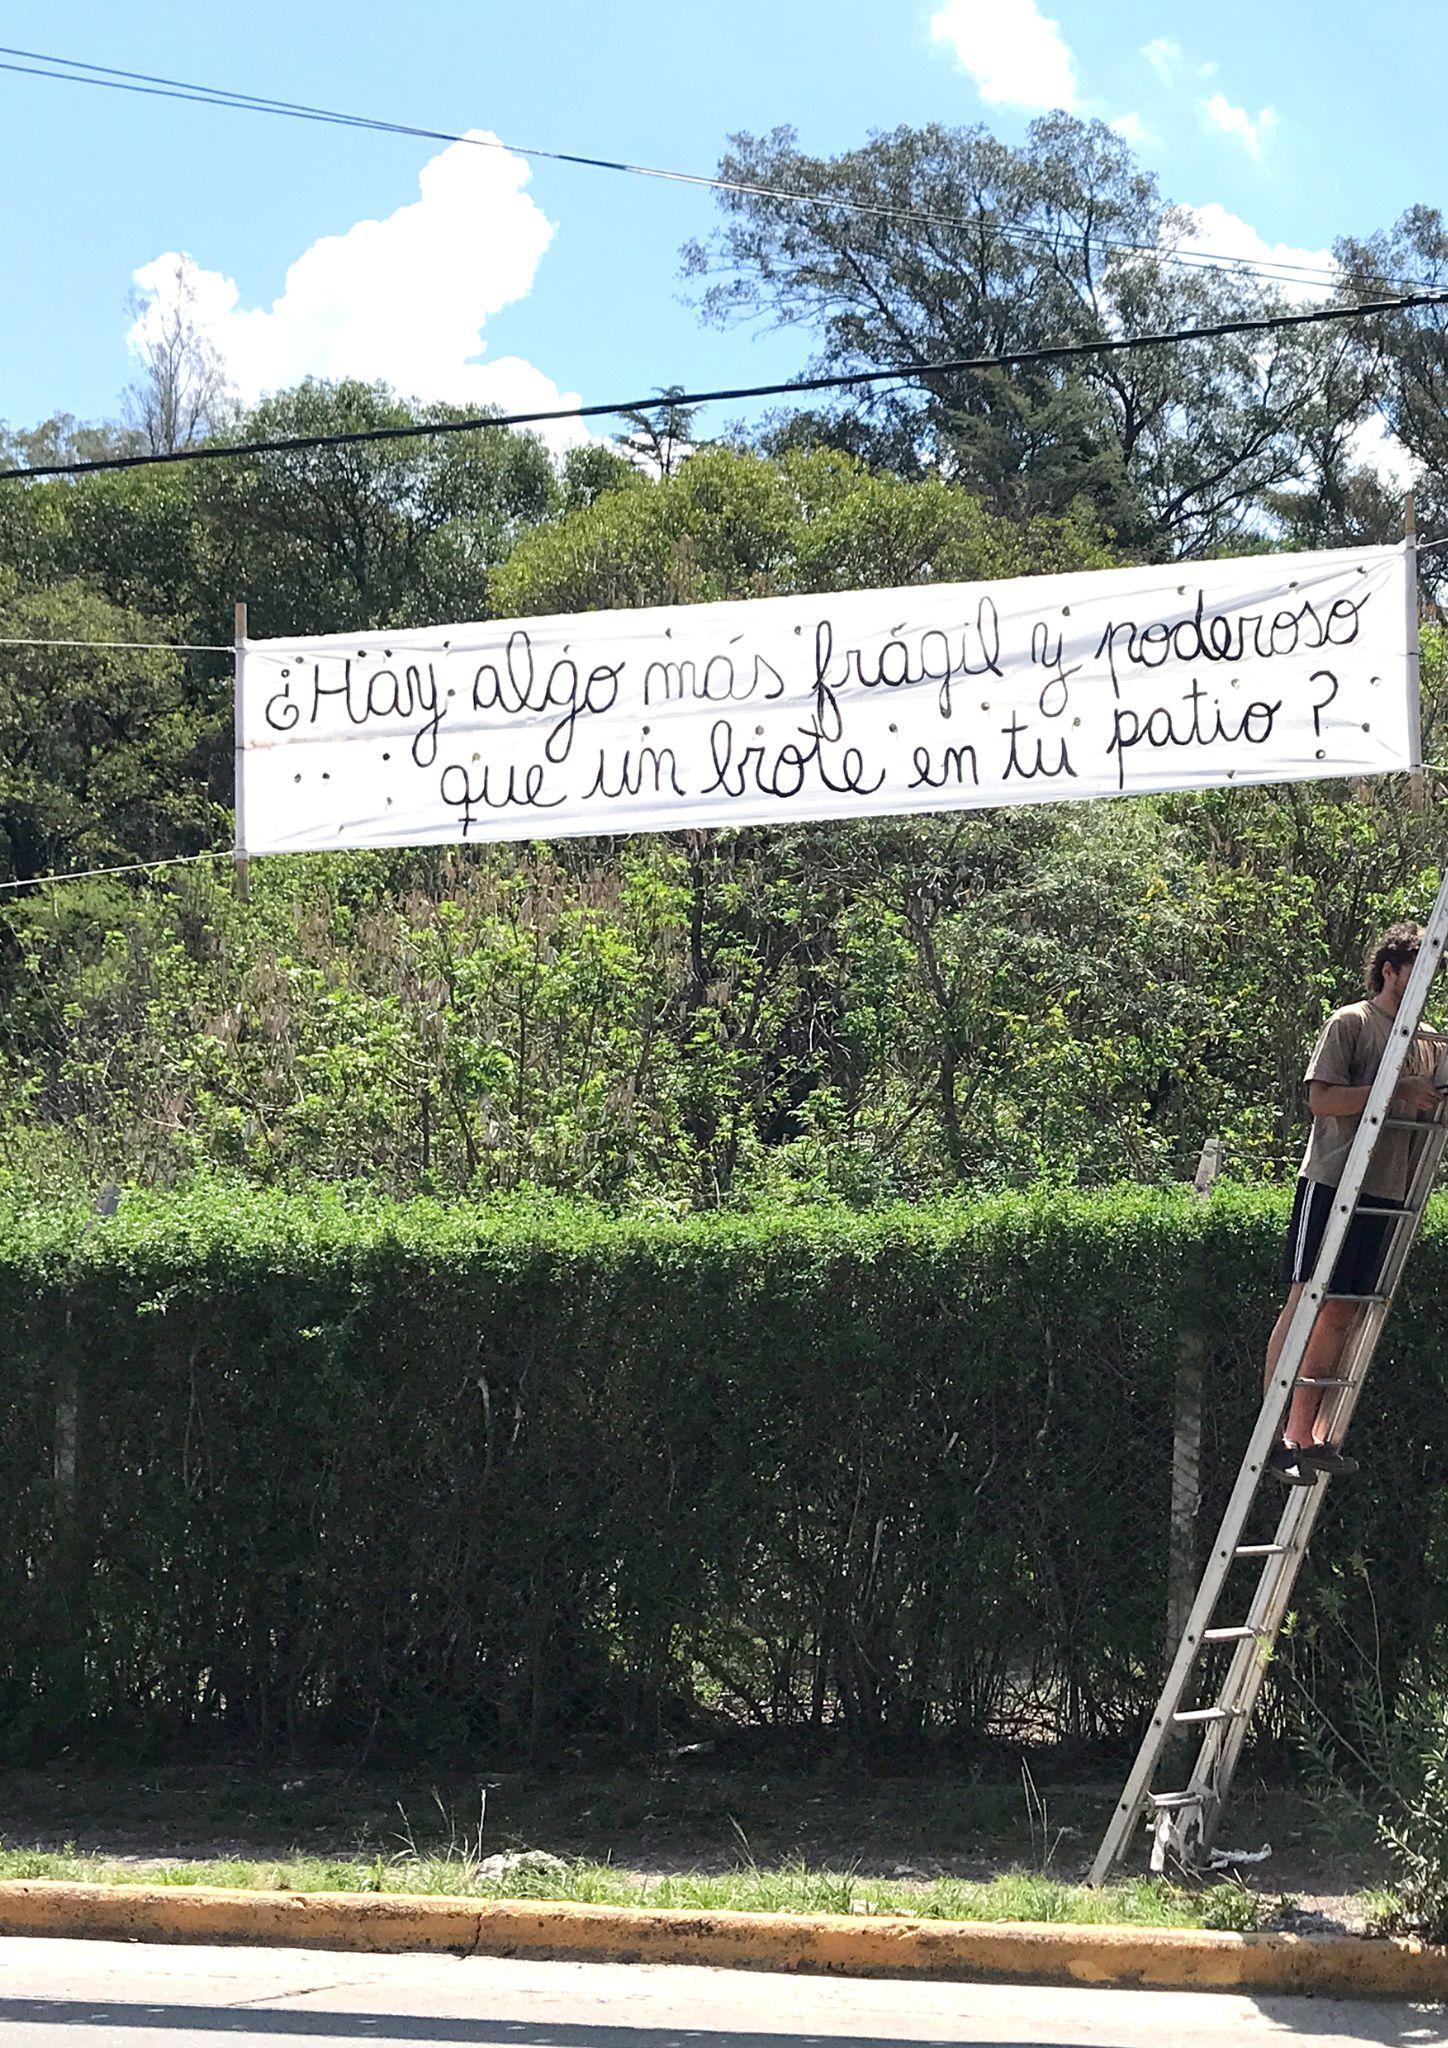 ¿Hay algo más frágil y poderoso
que un brote en tu patio?